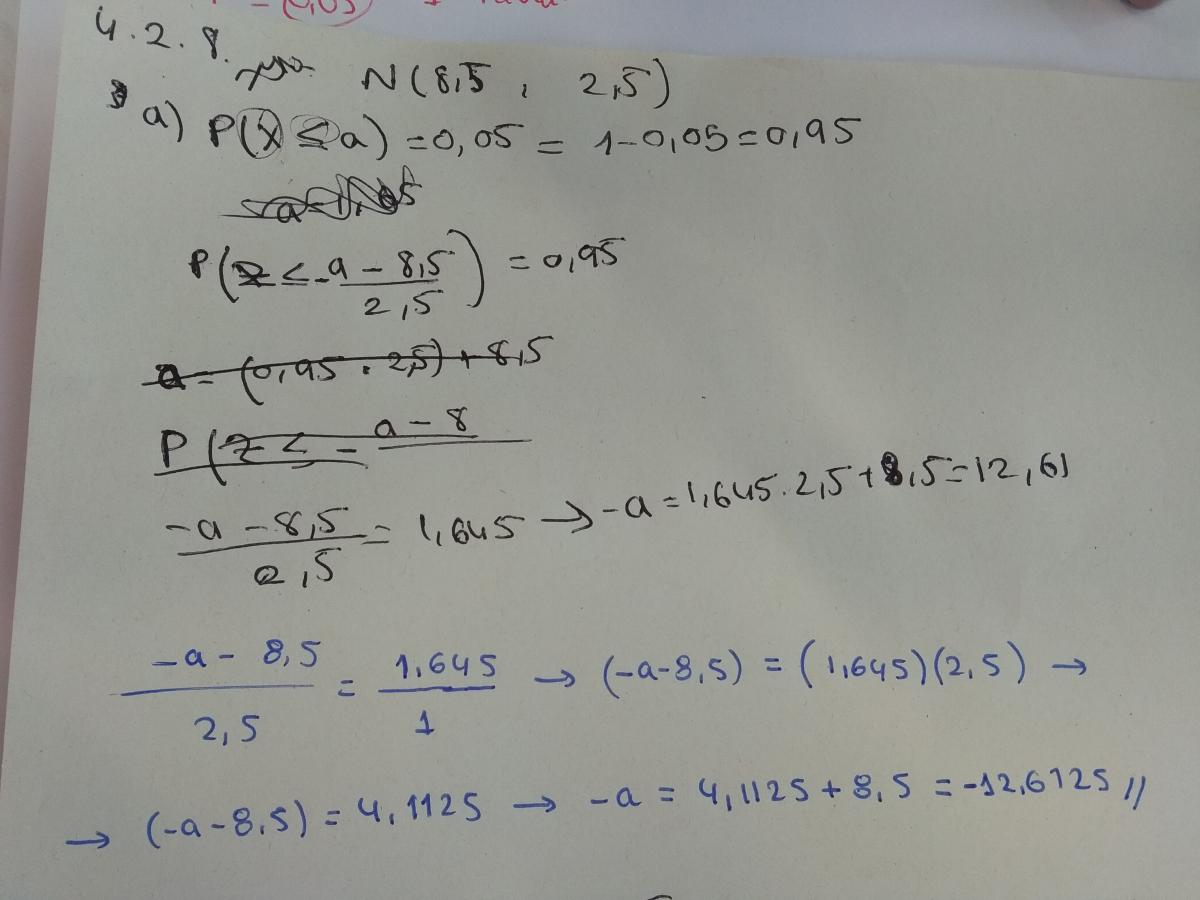 4.2.8.
N(8,5 , 2,5)
a) P(X ≤ a) = 0,05 = 1-0,05 = 0,95
P(z ≤ -a - 8,5 / 2,5) = 0,95
a = (0,95 . 2,5) + 8,5
P(z ≤ - a - 8
-a - 8,5 / 2,5 = 1,645 → -a = 1,645 . 2,5 + 8,5 = 12,61
-a - 8,5 / 2,5 = 1.645 / 1 → (-a-8,5) = (1,645)(2,5) →
→ (-a-8.5) = 4,1125 → -a = 4,1125 + 8,5 = -12,6125 //